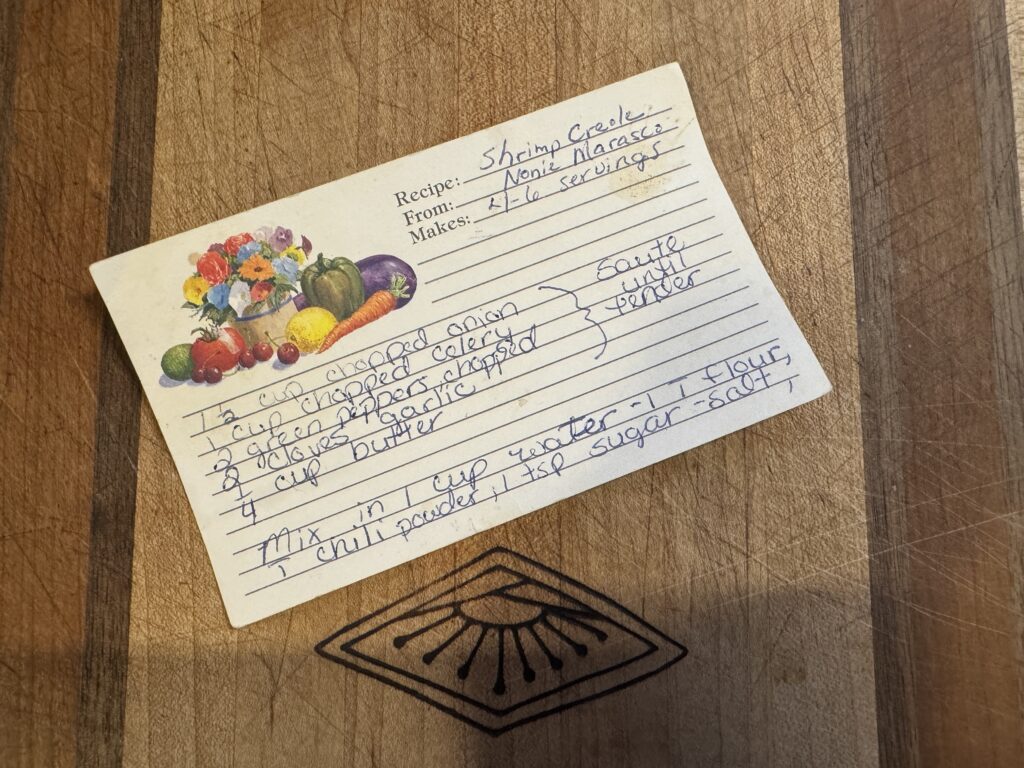 Recipe: Shrimp Creole
From: Nonie Marasco
Makes: 4-6 servings
1 ½ cup chopped onion
1 cup chopped celery
2 green peppers chopped
2 cloves garlic
¼ cup butter
saute
until
tender
Mix in 1 cup water - 1 T flour,
1 chili powder, 1 tsp sugar - salt,